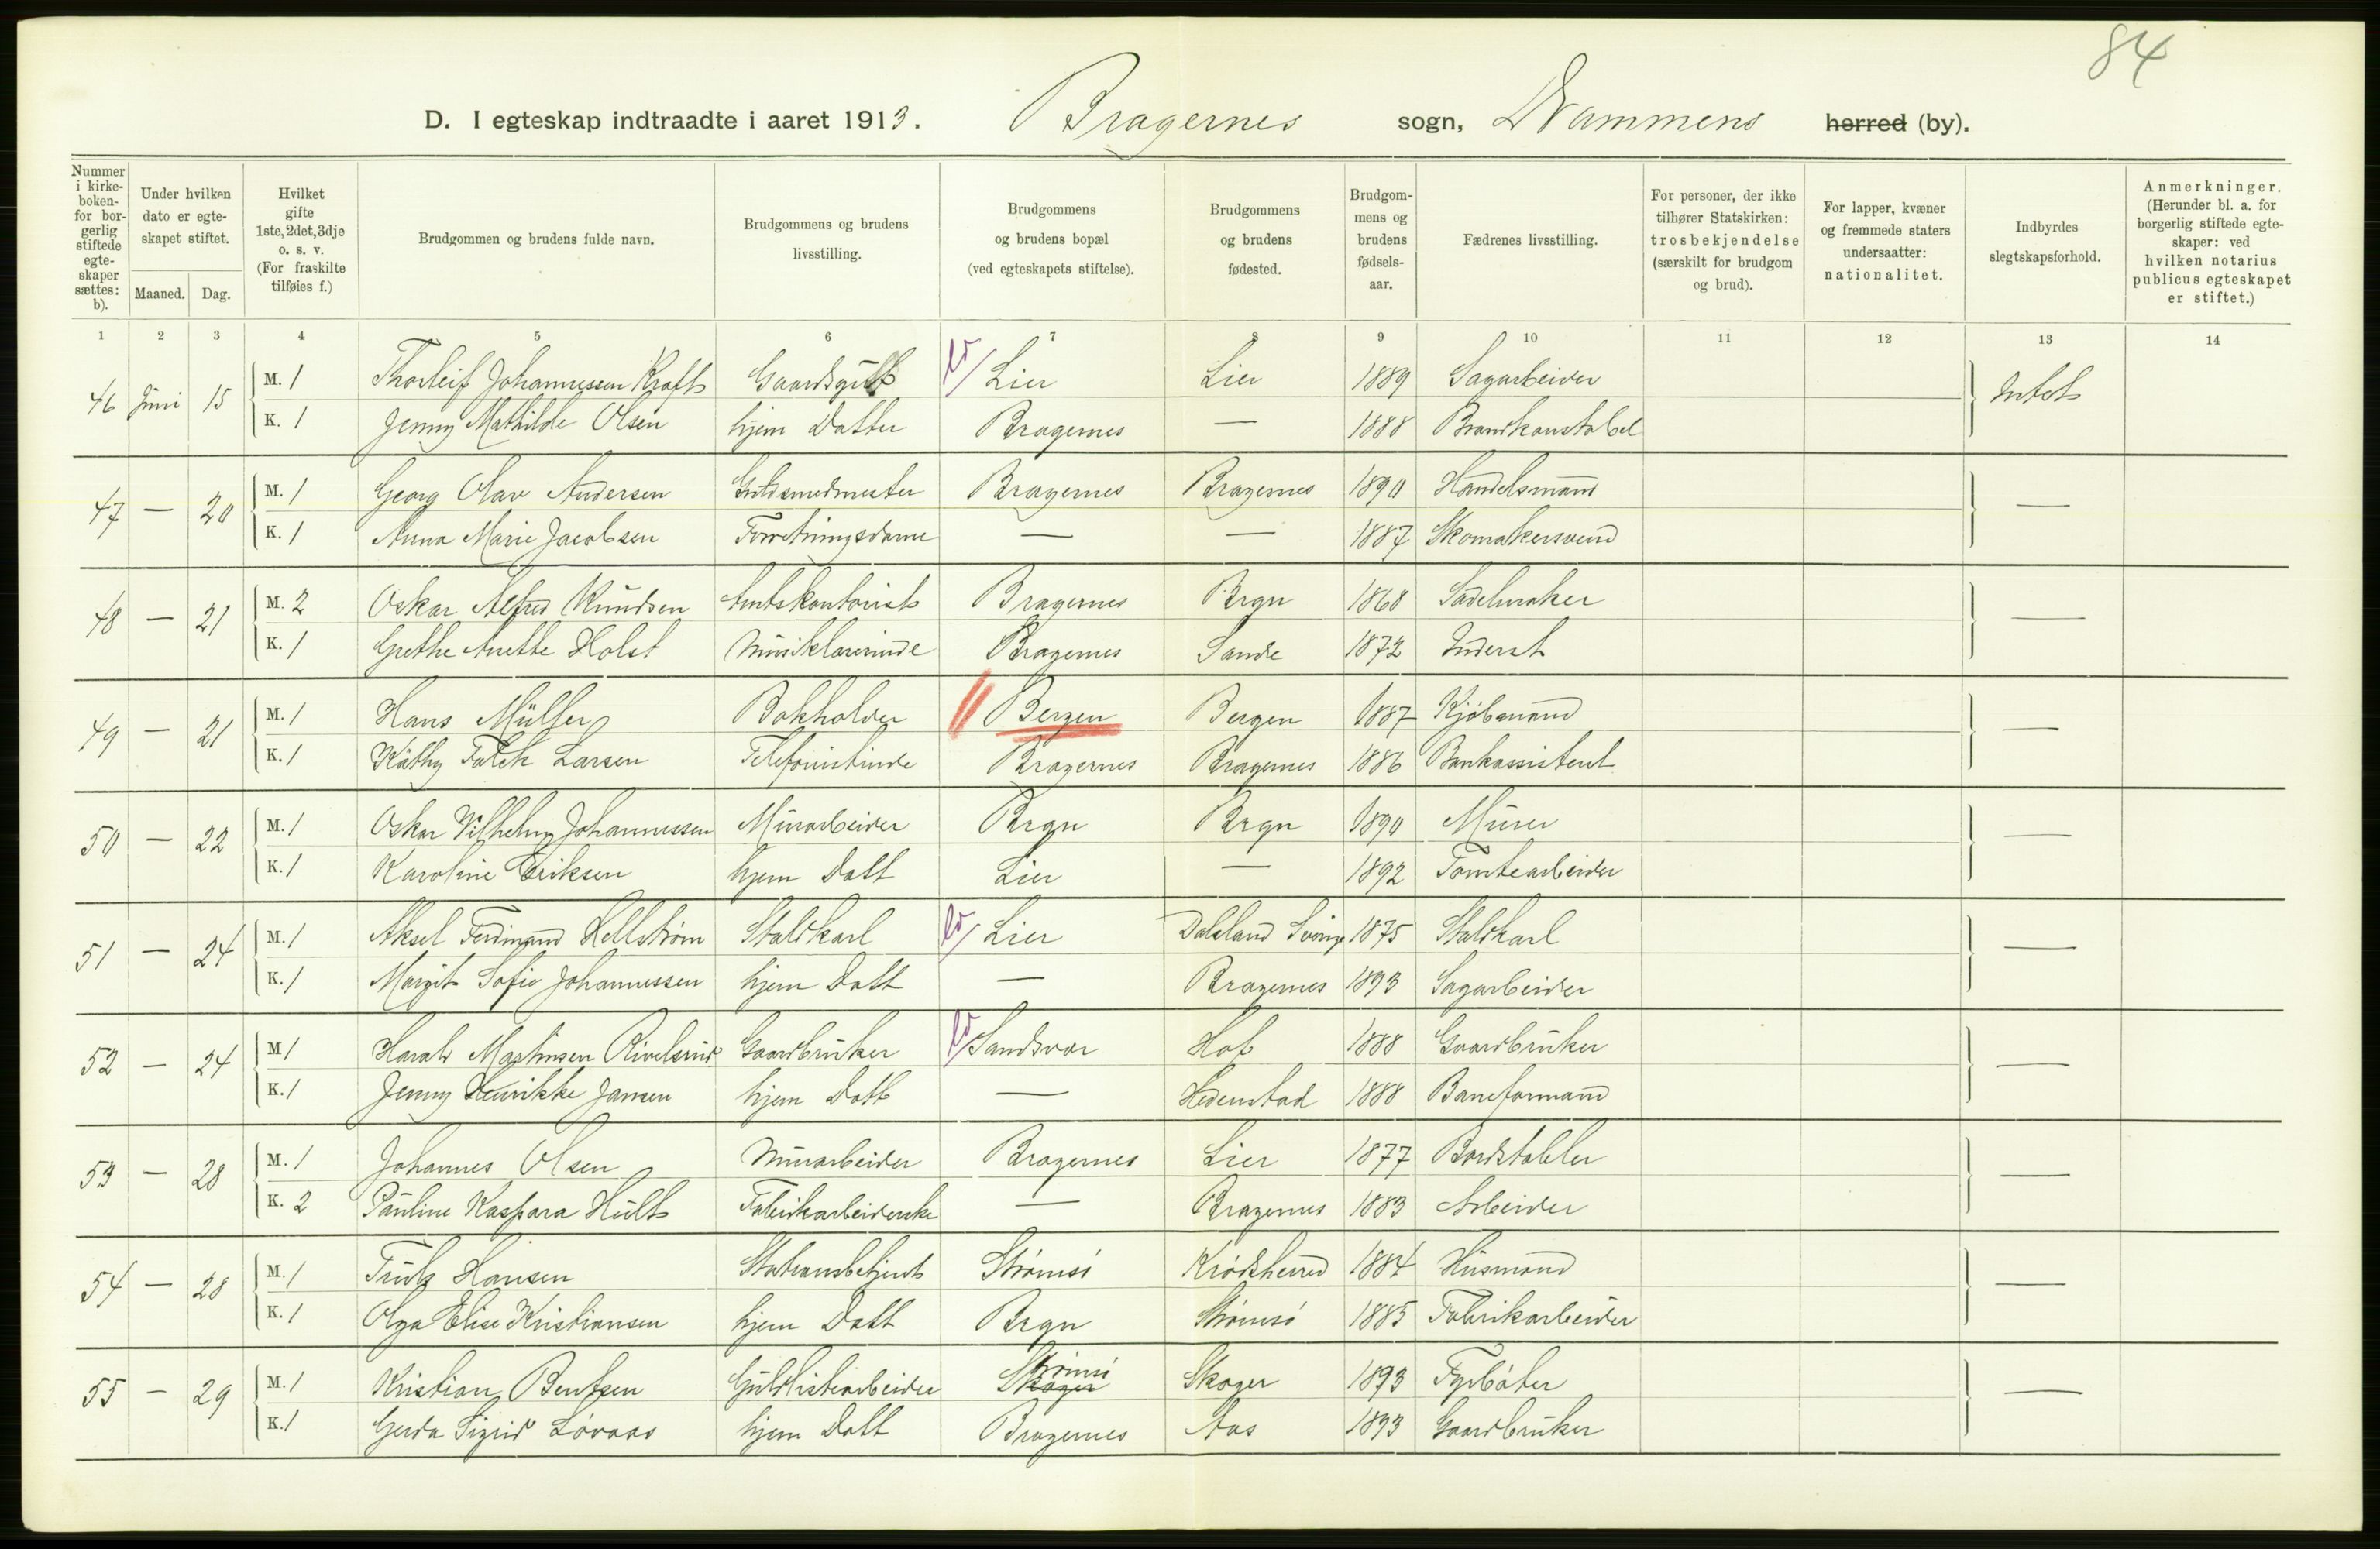 84
D. I egteskap indtraadte i aaret 1913. Bragernes sogn, Drammens herred (by).
Nummer i kirke-boken- for bor-gerlig stiftede egte-skaper sættes: b).
Under hvilken dato er egte-skapet stiftet.
Maaned. Dag.
Hvilket gifte 1ste, 2det, 3dje o. s. v. (For fraskilte tilføies f.)
Brudgommen og brudens fulde navn.
Brudgommens og brudens livsstilling.
Brudgommens og brudens bopæl (ved egteskapets stiftelse).
Brudgommens og brudens fødested.
Brudgom-mens og brudens fødsels-aar.
Fædrenes livsstilling.
For personer, der ikke tilhører Statskirken: trosbekjendelse (særskilt for brudgom og brud).
For lapper, kvæner og fremmede staters undersaatter: nationalitet.
Indbyrdes slegtskapsforhold.
Anmerkninger. (Herunder bl. a. for borgerlig stiftede egte-skaper: ved hvilken notarius publicus egteskapet er stiftet.)
1 2 3 4 5 6 7 8 9 10 11 12 13 14
46 Juni 15 M. 1 Thorleif Johannessen Kraft Gaardsgut Lier Lier 1889 Sagarbeider Intet
K. 1 Jenny Mathilde Olsen hjem Datter Bragernes — 1888 Brandkonstabel
47 — 20 M. 1 Georg Olav Andersen Guldsmedmester Bragernes Bragernes 1890 Handelsmand —
K. 1 Anna Marie Jacobsen Forretningsdame — — 1887 Skomakersvend
48 — 21 M. 2 Oskar Alfred Knudsen Amtskontorist Bragernes Brgn 1868 Sadelmaker —
K. 1 Grethe Anette Holst Musiklærerinde Bragernes Sande 1872 Inderst
49 — 21 M. 1 Hans Müller Bokholder Bergen Bergen 1887 Kjøbmand —
K. 1 Käthy Falck Larsen Telefonistinde Bragernes Bragernes 1886 Bankassistent
50 — 22 M. 1 Oskar Vilhelm Johannessen Murarbeider Brgn Brgn 1890 Murer —
K. 1 Karoline Eriksen hjem Datt Lier — 1892 Tomtearbeider
51 — 24 M. 1 Aksel Ferdinand Hellstrøm Staldkarl Lier Dalsland Sverige 1875 Staldkarl —
K. 1 Margit Sofie Johannessen hjem Datt — Bragernes 1893 Sagarbeider
52 — 24 M 1 Harald Martinsen Rivelsrud Gaardbruker Sandsvær Hof 1888 Gaardbruker —
K. 1 Jenny Henrikke Jansen hjem Datt — Hedenstad 1888 Baneformand
53 — 28 M. 1 Johannes Olsen Murarbeider Bragernes Lier 1877 Bordstabler —
K. 2 Pauline Kaspara Hult Fabrikarbeiderske — Bragernes 1883 Arbeider
54 — 28 M. 1 Truls Hansen Stationsbetjent Strømsø Krødsherred 1884 Husmand —
K. 1 Olga Elise Kristiansen hjem Datt Brgn Strømsø 1885 Fabrikarbeider
55 — 29 M. 1 Kristian Bentsen Guldlistearbeider Skoger Strømsø Skoger 1893 Fyrbøter —
K. 1 Gerda Sigrid Løvaas hjem Datt Bragernes Aas 1893 Gaardbruker